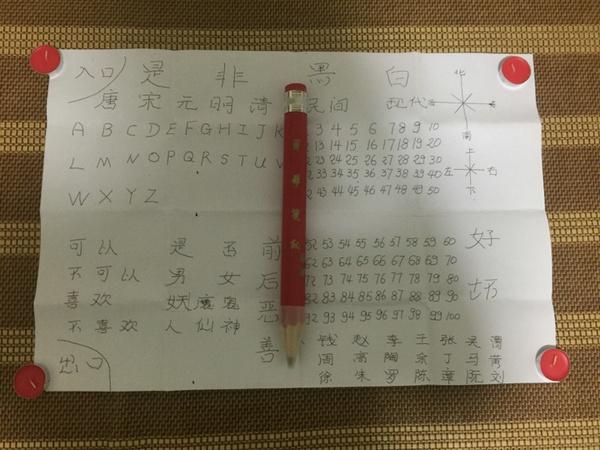 入口 是 非 黑 白
唐 宋 元 明 清 民间 现代
北
南
A B C D E F G H I J K
L M N O P Q R S T U V
W X Y Z
3 4 5 6 7 8 9 10
13 14 15 16 17 18 19 20
23 24 25 26 27 28 29 30
33 34 35 36 37 38 39 40
43 44 45 46 47 48 49 50
上
左 右
下
可以 是 否 前
不可以 男 女 后
喜欢 妖 魔 鬼 恶
不喜欢 人 仙 神 善
52 53 54 55 56 57 58 59 60
62 63 64 65 66 67 68 69 70
72 73 74 75 76 77 78 79 80
82 83 84 85 86 87 88 89 90
92 93 94 95 96 97 98 99 100
好
坏
钱 赵 李 王 张 吴
周 高 陶 余 丁 马 黄
徐 朱 罗 陈 章 阮 刘
出口